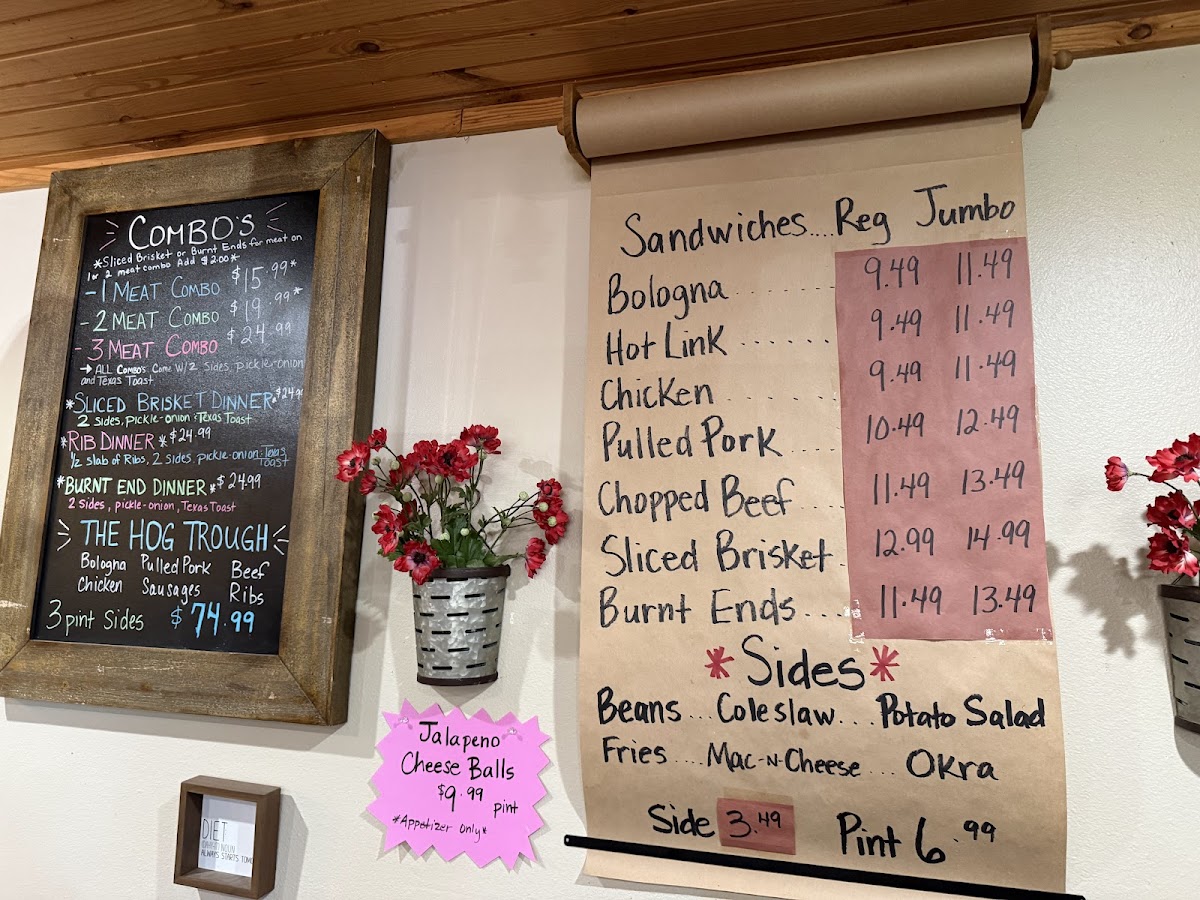 COMBO'S
*Sliced Brisket or Burnt Ends for meat on
1 or 2 meat combo Add $2.00*
- 1 MEAT COMBO $15.99*
- 2 MEAT COMBO $19.99*
- 3 MEAT COMBO $24.99
→ ALL COMBO'S Come W/ 2 Sides, pickle-onion
and Texas Toast
*SLICED BRISKET DINNER* $24.99
2 sides, pickle-onion & Texas Toast
*RIB DINNER* $24.99
1/2 slab of Ribs, 2 sides, pickle-onion & Texas
Toast
*BURNT END DINNER* $24.99
2 sides, pickle-onion, Texas Toast
THE HOG TROUGH
Bologna Pulled Pork Beef
Chicken Sausages Ribs
3 pint Sides $74.99
Jalapeno
Cheese Balls
$9.99 pint
*Appetizer only*
DIET
NOUN
ALWAYS STARTS TOMO
Sandwiches.... Reg Jumbo
Bologna .......... 9.49 11.49
Hot Link ....... 9.49 11.49
Chicken ....... 9.49 11.49
Pulled Pork .... 10.49 12.49
Chopped Beef .... 11.49 13.49
Sliced Brisket . 12.99 14.99
Burnt Ends .... 11.49 13.49
*Sides*
Beans ... Coleslaw ... Potato Salad
Fries .... Mac-N-Cheese .... Okra
Side 3.49 Pint 6.99